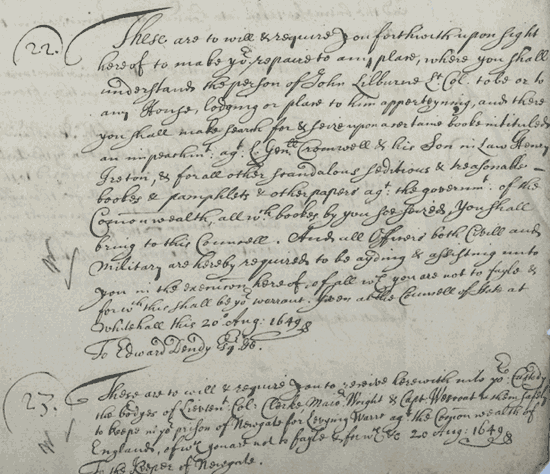 22. These are to will & require you forthwith upon sight
hereof to make yor repaire to any place, where you shall
understand the person of John Lilburne Lt. Col. to be or to
any House, lodging or place to him apperteyning, and there
you shall make search for & seize upon a certaine booke intituled
an impeachmt. agt. L. Genll. Cromwell & his Son in Law Henry
Ireton, & for all other scandalous seditious & treasonable
bookes & pamphlets & other papers agt. the governmt. of the
Comonwealth, all wch. bookes by you soe seized, You shall
bring to this Counsell. And all Officers both Civill and
Military are hereby required to be ayding & assisting unto
you in the execucon hereof, of all wch you are not to fayle &
for wch this shall be yor warrant. Given at the Counsell of State at
Whitehall this 20o Aug: 1649
To Edward Dendy Esqr
23. These are to will & require you to receive herewith into yor Custody
the bodyes of Lievtent. Col: Clerke, Major Wright & Capt. & them safely
to keepe in yor prison of Newgate for Levying Warre agt. the Comonwealth of
England, of wch you are not to fayle & for wch &c 20 Aug: 1649
To the Keeper of Newgate.